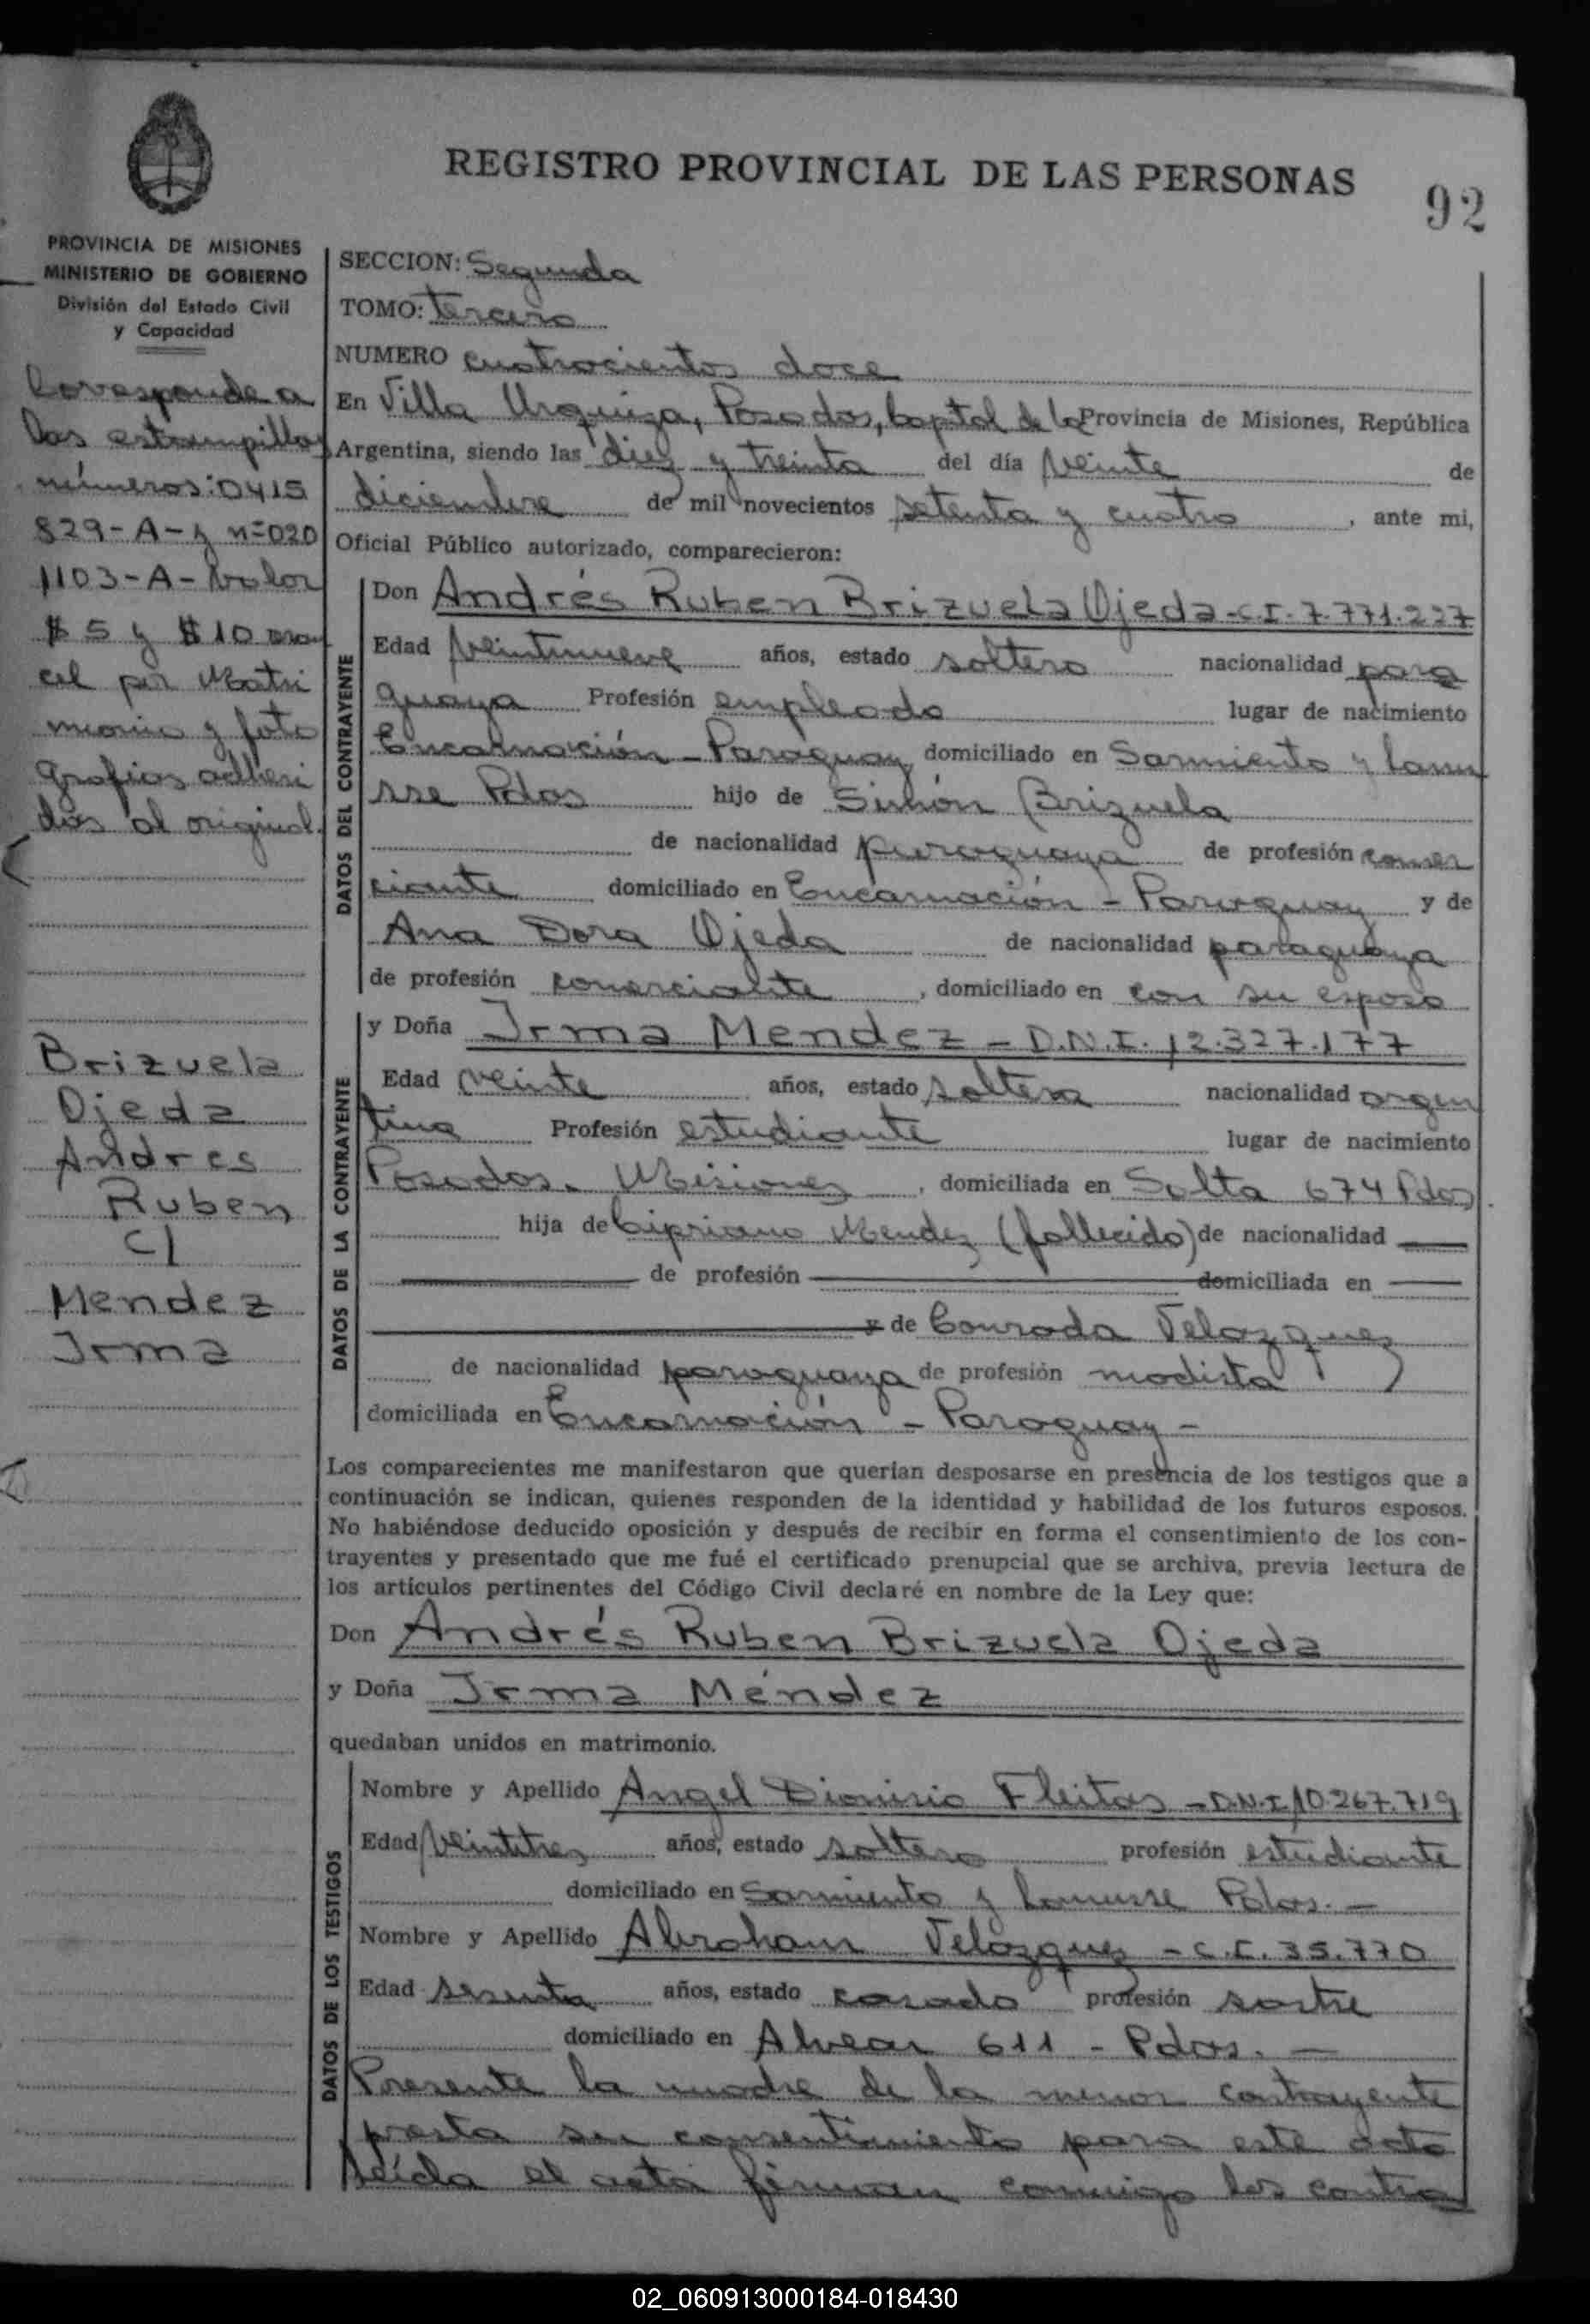 REGISTRO PROVINCIAL DE LAS PERSONAS
92
PROVINCIA DE MISIONES
MINISTERIO DE GOBIERNO
División del Estado Civil
y Capacidad
Corresponde a
las estampillas
números: 0415
829-A- y nº 020
1103-A- Valor
$ 5 y $ 10 aran
cel por Matri
monio y foto
grafias adheri
das al original.
Brizuela
Ojeda
Andres
Ruben
c/
Mendez
Irma
SECCION: Segunda
TOMO: tercero
NUMERO cuatrocientos doce
En Villa Urquiza, Posadas, Capital de la Provincia de Misiones, República
Argentina, siendo las diez y treinta del día veinte de
diciembre de mil novecientos setenta y cuatro, ante mi,
Oficial Público autorizado, comparecieron:
DATOS DEL CONTRAYENTE
Don Andrés Ruben Brizuela Ojeda - C.I. 7.771.227
Edad veintinueve años, estado soltero nacionalidad para
guaya Profesión empleado lugar de nacimiento
Encarnación - Paraguay domiciliado en Sarmiento y Lanu
sse Pdas hijo de Simón Brizuela
de nacionalidad paraguaya de profesión comer
ciante domiciliado en Encarnación - Paraguay y de
Ana Dora Ojeda de nacionalidad paraguaya
de profesión comerciante, domiciliado en con su esposo
DATOS DE LA CONTRAYENTE
y Doña Irma Mendez - D.N.I. 12.327.177
Edad veinte años, estado soltera nacionalidad argen
tina Profesión estudiante lugar de nacimiento
Posadas. Misiones, domiciliada en Salta 674 Pdas
hija de Cipriano Mendez (fallecido) de nacionalidad
de profesión domiciliada en
y de Conrada Velazquez
de nacionalidad paraguaya de profesión modista
domiciliada en Encarnación - Paraguay -
Los comparecientes me manifestaron que querían desposarse en presencia de los testigos que a
continuación se indican, quienes responden de la identidad y habilidad de los futuros esposos.
No habiéndose deducido oposición y después de recibir en forma el consentimiento de los con-
trayentes y presentado que me fué el certificado prenupcial que se archiva, previa lectura de
los artículos pertinentes del Código Civil declaré en nombre de la Ley que:
Don Andrés Ruben Brizuela Ojeda
y Doña Irma Méndez
quedaban unidos en matrimonio.
DATOS DE LOS TESTIGOS
Nombre y Apellido Angel Dionisio Fleitas - D.N.I. 10.267.719
Edad veintitres años, estado soltero profesión estudiante
domiciliado en Sarmiento y Lanusse Pdas. -
Nombre y Apellido Abraham Velazquez - C.I. 35.770
Edad sesenta años, estado casado profesión sastre
domiciliado en Alvear 611 - Pdas. -
Presente la madre de la menor contrayente
presta su consentimiento para este acto
leída el acta firman conmigo los contra
02_060913000184-018430